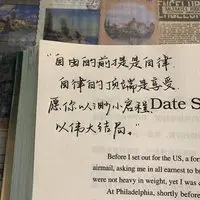 "自由的前提是自律
自律的顶端是享受.
愿你以渺小启程
以伟大结局。"
Date S
Before I set out for the US, a for
airmail, asking me in all earnest to b
were not heavy in weight, yet I was c
At Philadelphia, shortly before